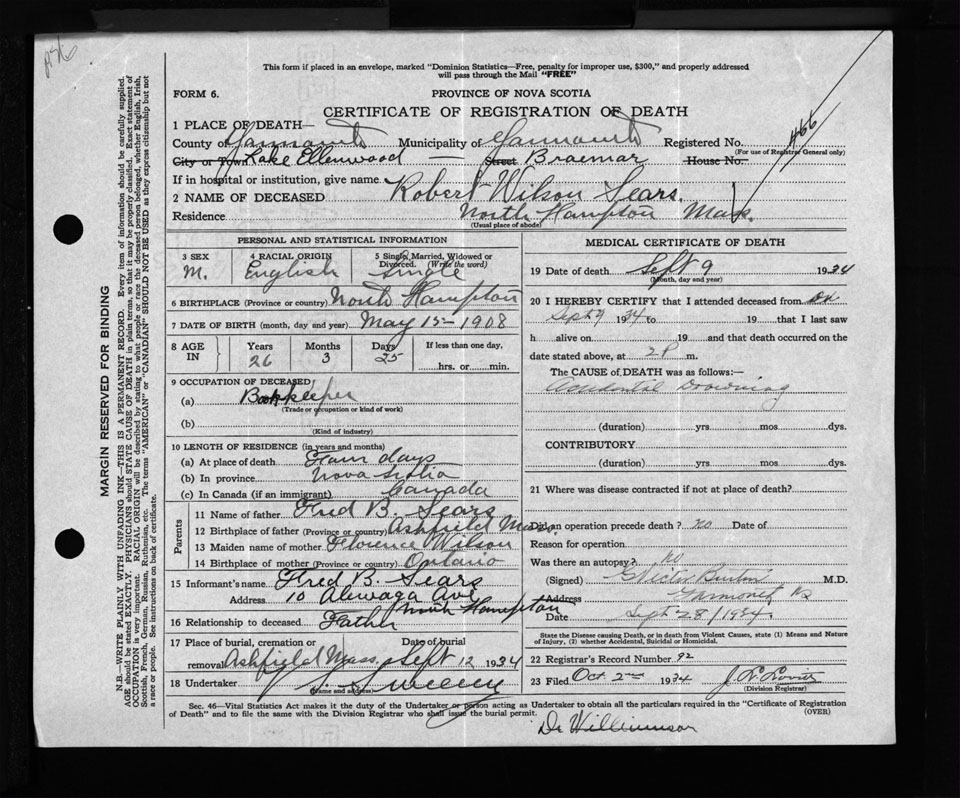 This form if placed in an envelope, marked "Dominion Statistics—Free, penalty for improper use, $300," and properly addressed
will pass through the Mail "FREE"
FORM 6.
PROVINCE OF NOVA SCOTIA
CERTIFICATE OF REGISTRATION OF DEATH
466
1 PLACE OF DEATH—
County of Yarmouth Municipality of Yarmouth Registered No.
(For use of Registrar General only)
City or Town Lake Ellenwood — Street Braemar House No.
If in hospital or institution, give name
2 NAME OF DECEASED Robert Wilson Sears.
Residence North Hampton Mass.
(Usual place of abode)
MARGIN RESERVED FOR BINDING
N.B.—WRITE PLAINLY WITH UNFADING INK—THIS IS A PERMANENT RECORD. Every item of information should be carefully supplied.
AGE should be stated EXACTLY. PHYSICIANS should STATE CAUSE OF DEATH in plain terms, so that it may be properly classified. Exact statement of
OCCUPATION is very important. RACIAL ORIGIN will be described by stating to what people or race the deceased person belonged, whether English, Irish,
Scottish, French, German, Russian, Ruthenian, etc. The terms "AMERICAN" or "CANADIAN" SHOULD NOT BE USED as they express citizenship but not
a race or people. See instructions on back of certificate.
PERSONAL AND STATISTICAL INFORMATION
3 SEX 4 RACIAL ORIGIN 5 Single, Married, Widowed or
Divorced. (Write the word)
M. English Single
6 BIRTHPLACE (Province or country) North Hampton
7 DATE OF BIRTH (month, day and year) May 15 1908
8 AGE IN Years Months Days If less than one day,
26 3 25 hrs. or min.
9 OCCUPATION OF DECEASED
(a) Bookkeeper
(Trade or occupation or kind of work)
(b)
(Kind of industry)
10 LENGTH OF RESIDENCE (in years and months)
(a) At place of death days
(b) In province Nova Scotia
(c) In Canada (if an immigrant) Canada
Parents
11 Name of father Fred B. Sears
12 Birthplace of father (Province or country) Ashfield Mass.
13 Maiden name of mother Florence Wilson
14 Birthplace of mother (Province or country) Ontario
15 Informant's name Fred B. Sears
Address 10 Ave
North Hampton
16 Relationship to deceased Father
17 Place of burial, cremation or Date of burial
removal Ashfield Mass. Sept 12 1934
18 Undertaker Sweeny
(Name and address)
MEDICAL CERTIFICATE OF DEATH
19 Date of death Sept 9 1934
(Month, day and year)
20 I HEREBY CERTIFY that I attended deceased from
Sept 9 1934 to 19 that I last saw
h alive on 19 and that death occurred on the
date stated above, at 2 P m.
The CAUSE OF DEATH was as follows:—
Accidental Drowning
(duration) yrs mos dys.
CONTRIBUTORY
(duration) yrs mos dys.
21 Where was disease contracted if not at place of death?
Did an operation precede death? no Date of
Reason for operation
Was there an autopsy? no
(Signed) Burton M.D.
Address Yarmouth NS
Date Sept 28/1934
State the Disease causing Death, or in death from Violent Causes, state (1) Means and Nature
of Injury, (2) whether Accidental, Suicidal or Homicidal.
22 Registrar's Record Number 92
23 Filed Oct 2nd 1934 Lovitt
(Division Registrar)
Sec. 46—Vital Statistics Act makes it the duty of the Undertaker or person acting as Undertaker to obtain all the particulars required in the "Certificate of Registration
of Death" and to file the same with the Division Registrar who shall issue the burial permit. (OVER)
Dr Williamson